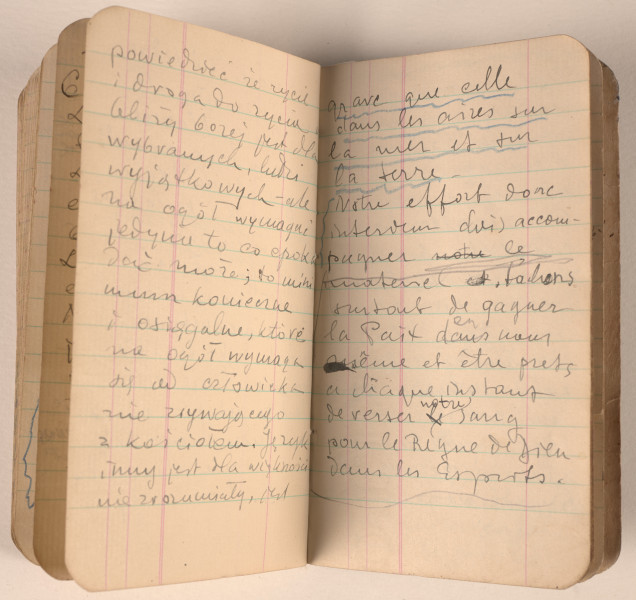 powiedzieć że życie
i droga do życia
bliży bożej jest dla
wybranych, ludzi
wyjątkowych – ale
na ogół wymagać
jedynie to co epoka
dać może; to mini
mum konieczne
i osiągalne, które
na ogół wymaga
się od człowieka
nie zrywającego
z kościołem. Język
inny jest dla większości
niezrozumiały, jest
grave que celle
dans les aires sur
la mer et sur
la terre.
Notre effort donc
interieur doi) accom-
pagner notre le
materiel et, tâchons
surtout de gagner
la Paix dans en nous
même et être prets
a chaque instant
de verser le notre Sang
pour le Règne de Dieu
dans les Esprits.